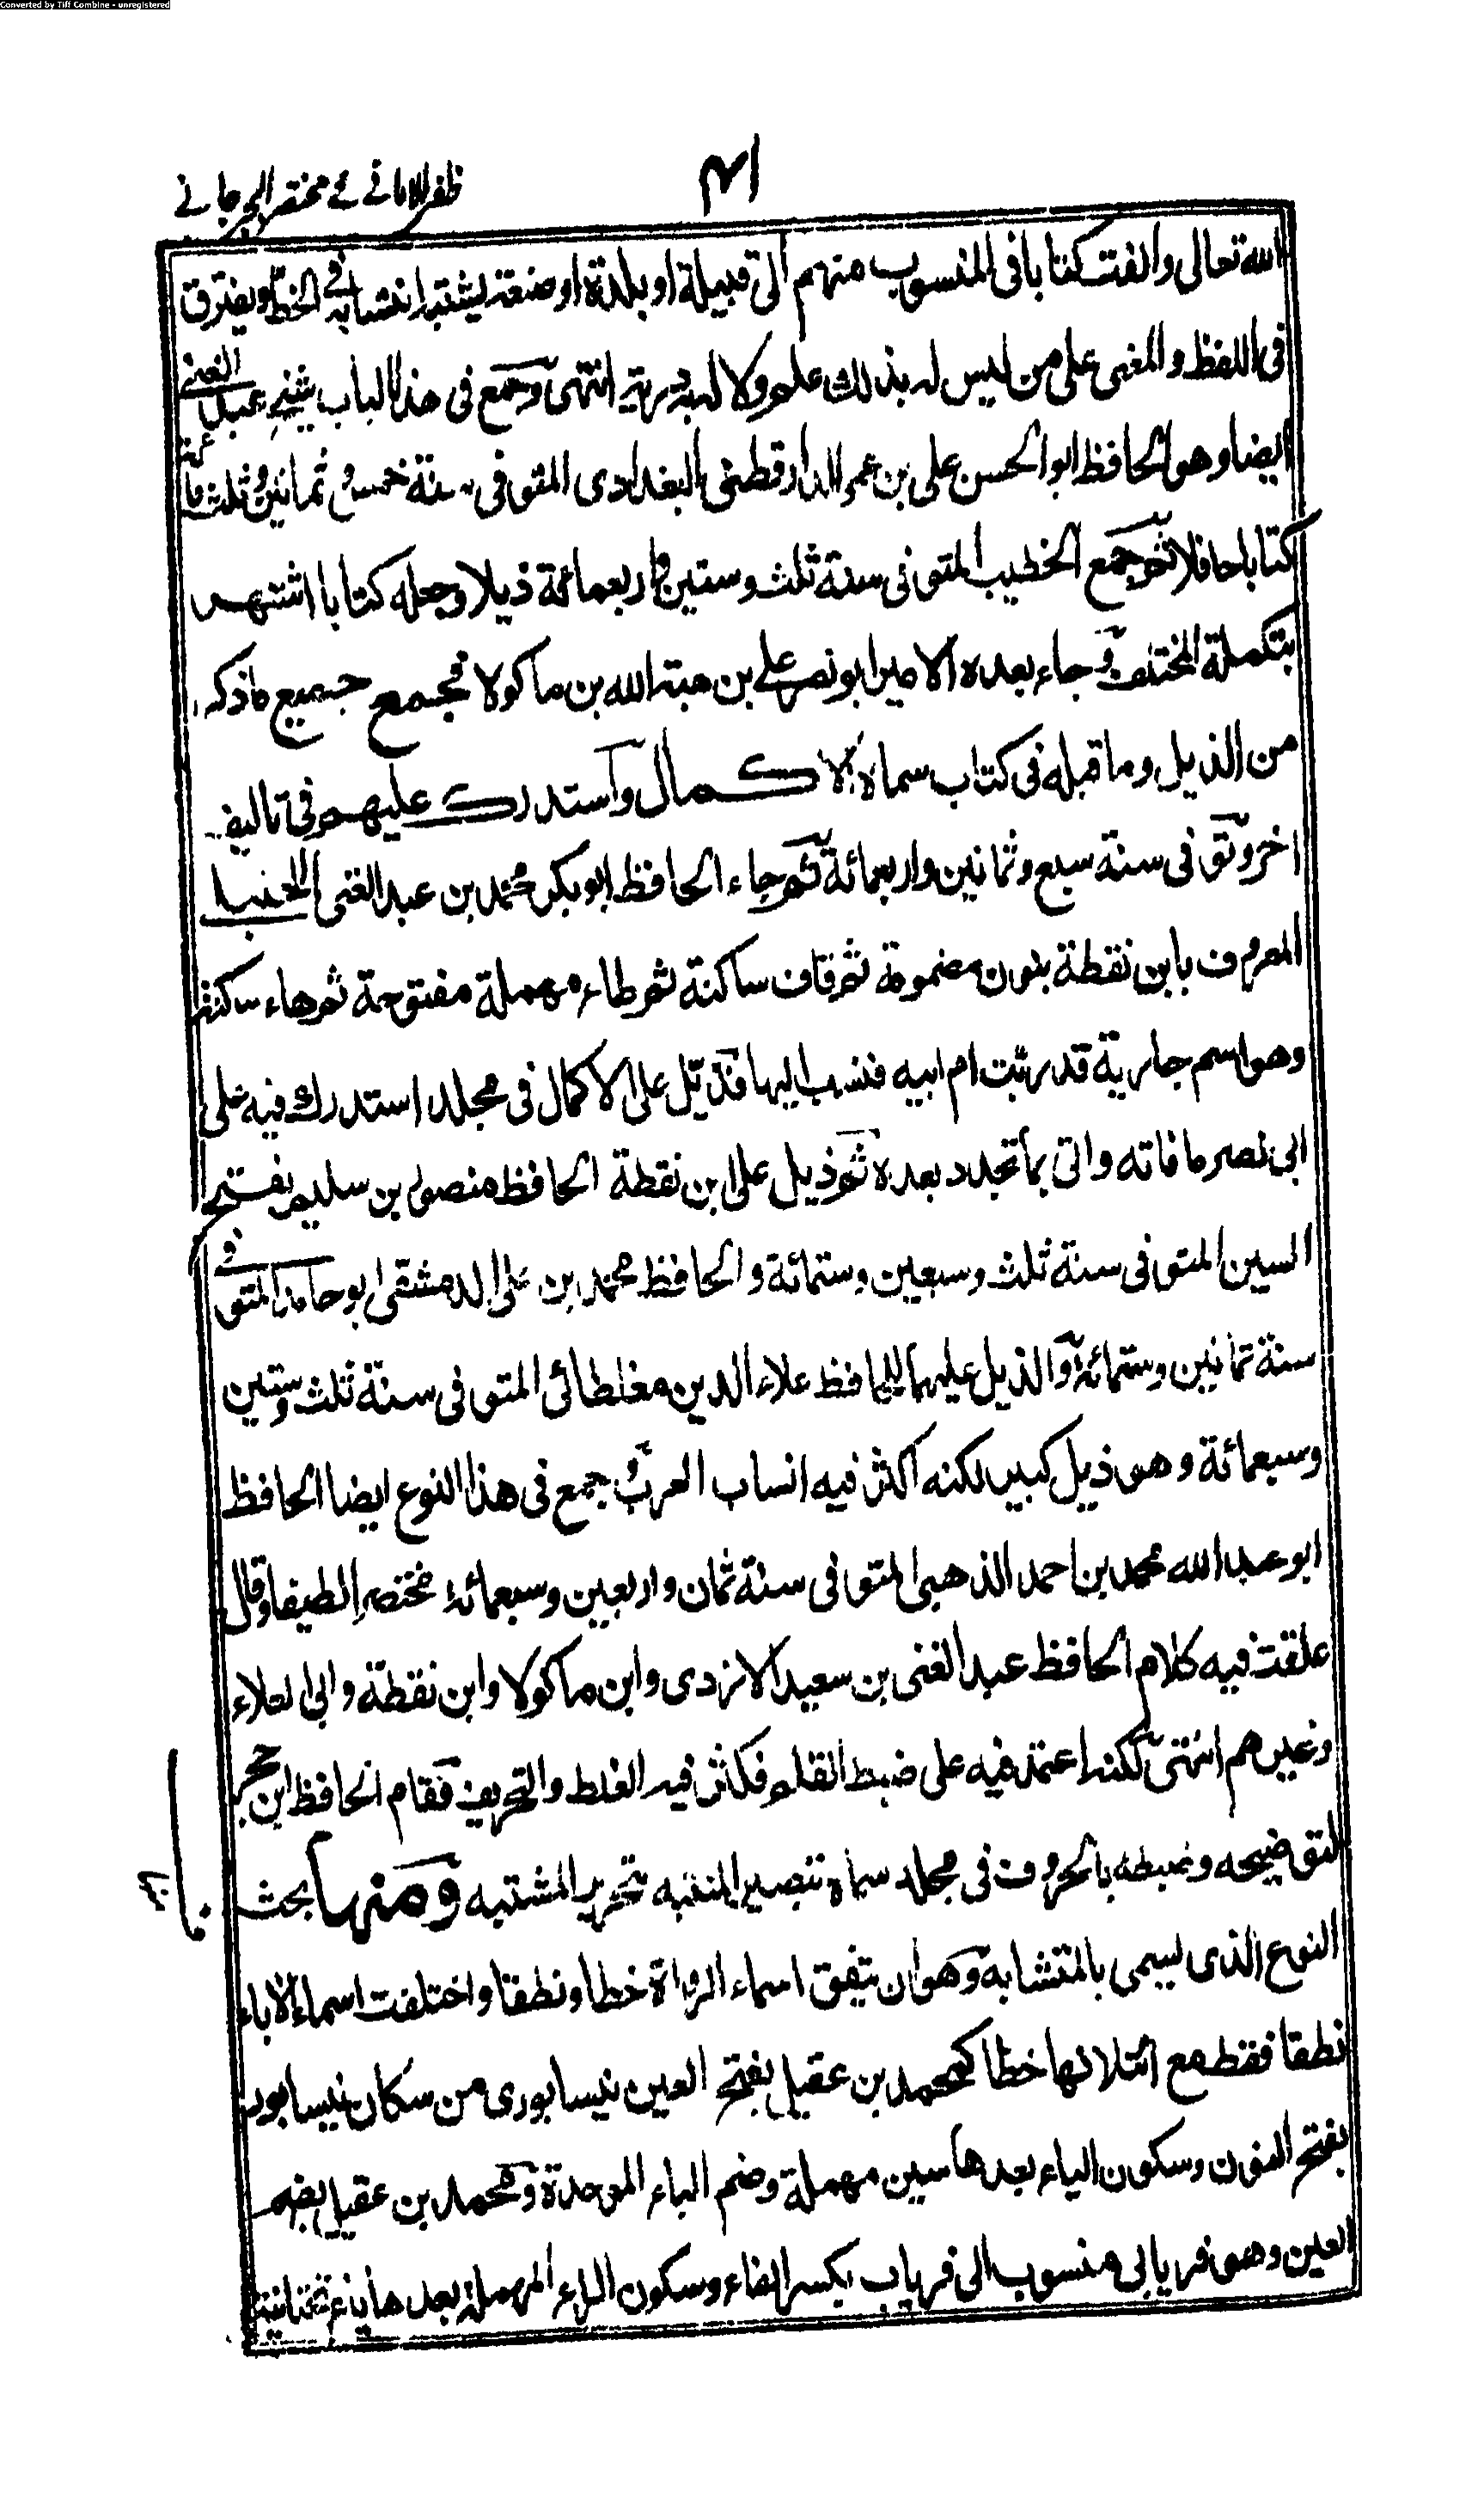 Converted by Tiff Combine - unregistered
ظفر الامانے فے مختصر الجرجانے
٤١
الله تعالى والفت كتابا فى المنسوب منهم الى قبيلة او بلدة او صنعة يشتبه انتسابه فى الخط ويفترق
فى اللفظ والمعنى على من ليس له بذلك علم ولا له به درية انتهى وجمع فى هذا الباب شيخ عبد الغنى
ايضا وهو الحافظ ابو الحسن على بن عمر الدارقطنى البغدادى المتوفى سنة خمس وثمانين وثلث مائة
كتابا حافلا ثم جمع الخطيب المتوفى سنة ثلث وستين واربعمائة ذيلا وجعله كتابا اشتهر
بتكملة المختلف وجاء بعده الامير ابو نصر على بن هبة الله بن ماكولا فجمع جميع ما ذكر
من الذيل وما قبله فى كتاب سماه الاكمال واستدرك عليهم فى تاليف
اخر وتوفى فى سنة سبع وثمانين واربعمائة ثم جاء الحافظ ابو بكر محمد بن عبد الغنى الحنبلى
المعروف بابن نقطة بنون مضمومة ثم قاف ساكنة ثم طاء مهملة مفتوحة ثم هاء ساكنة
وهو اسم جارية قد ربت ام ابيه فنسب اليها فذيّل على الاكمال فى مجلد استدرك فيه على
ابى نصر ما فاته واتى بما تجدد بعده ثم ذيل على ابن نقطة الحافظ منصور بن سليم بفتح
السين المتوفى سنة ثلث وسبعين وستمائة والحافظ محمد بن على الدمشقى ابو حامد المتوفى
سنة ثمانين وستمائة والذيل عليهما للحافظ علاء الدين مغلطائى المتوفى سنة ثلث وستين
وسبعمائة وهو ذيل كبير لكنه اكثر فيه انساب العرب وجمع فى هذا النوع ايضا الحافظ
ابو عبد الله محمد بن احمد الذهبى المتوفى سنة ثمان واربعين وسبعمائة مختصرا لطيفا وقال
علقت فيه كلام الحافظ عبد الغنى بن سعيد الازدى وابن ماكولا وابن نقطة وابى العلاء
وغيرهم انتهى لكنه اعتمد فيه على ضبط القلم فكثر فيه الغلط والتحريف فقام الحافظ ابن حجر
لتوضيحه وضبطه بالحروف فى مجلد سماه تبصير المنتبه بتحرير المشتبه ومنها بحث
النوع الذى يسمى بالمتشابه وهو ان يتفق اسماء الرواة خطا ونطقا واختلفت اسماء الاباء
نطقا فقط مع ائتلافها خطا كمحمد بن عقيل بفتح العين نيسابورى من سكان نيسابور
بفتح النون وسكون الياء بعدها سين مهملة وضم الباء الموحدة ومحمد بن عقيل بضم
العين وهو فريابى منسوب الى فرياب بكسر الفاء وسكون الراء المهملة بعدها ياء تحتانية